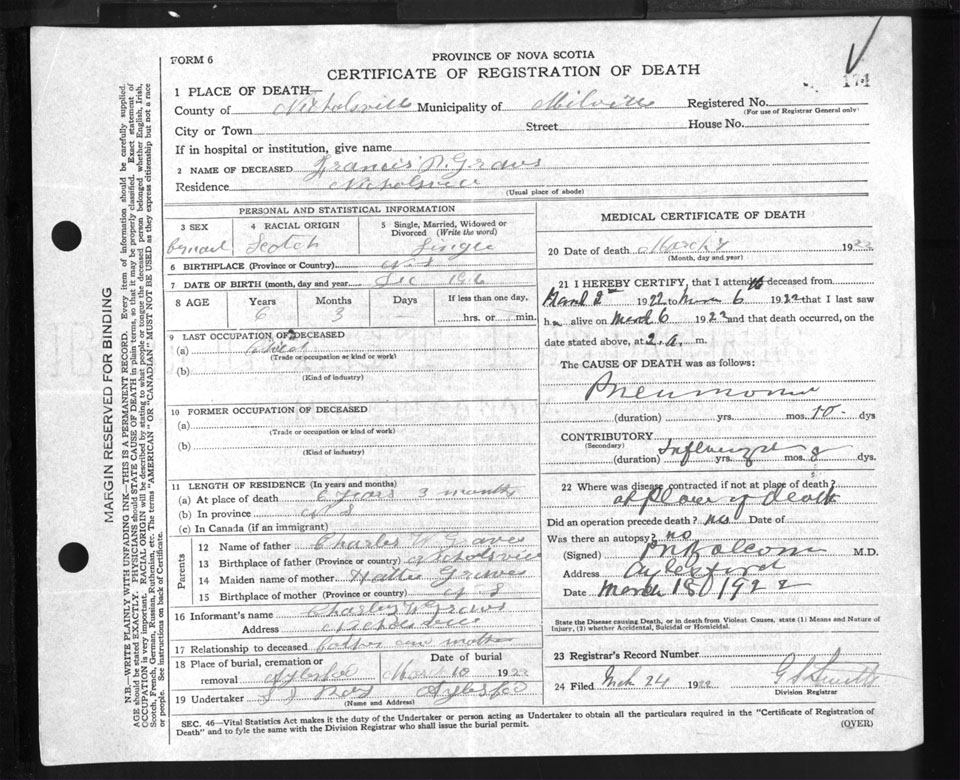 FORM 6
PROVINCE OF NOVA SCOTIA
CERTIFICATE OF REGISTRATION OF DEATH
174
1 PLACE OF DEATH—
County of Nicholsville Municipality of Milville Registered No.
(For use of Registrar General only)
City or Town Street House No.
If in hospital or institution, give name
2 NAME OF DECEASED Francis Graves
Residence Nicholsville
(Usual place of abode)
PERSONAL AND STATISTICAL INFORMATION
3 SEX 4 RACIAL ORIGIN 5 Single, Married, Widowed or Divorced (Write the word)
Scotch Single
6 BIRTHPLACE (Province or Country) N.S
7 DATE OF BIRTH (month, day and year) Dec
8 AGE Years Months Days If less than one day,
6 3 — hrs. or min.
9 LAST OCCUPATION OF DECEASED
(a)
(Trade or occupation or kind or work)
(b)
(Kind of industry)
10 FORMER OCCUPATION OF DECEASED
(a)
(Trade or occupation or kind of work)
(b)
(Kind of industry)
11 LENGTH OF RESIDENCE (In years and months)
(a) At place of death 6 years 3 months
(b) In province N S
(c) In Canada (if an immigrant)
Parents
12 Name of father Charles W Graves
13 Birthplace of father (Province or country) Nicholsville
14 Maiden name of mother Hattie Graves
15 Birthplace of mother (Province or country) N S
16 Informant's name Charles W Graves
Address Nicholsville
17 Relationship to deceased father and mother
18 Place of burial, cremation or removal Date of burial
Mar 10 1922
19 Undertaker
(Name and Address)
MEDICAL CERTIFICATE OF DEATH
20 Date of death March 1922
(Month, day and year)
21 I HEREBY CERTIFY, that I attended deceased from
March 2nd 1922 to March 6 1922 that I last saw
h alive on March 6 1922 and that death occurred, on the
date stated above, at 2.a. m.
The CAUSE OF DEATH was as follows:
Pneumonia
(duration) yrs. mos. 10 dys
CONTRIBUTORY Influenza
(Secondary)
(duration) yrs. mos. 8 dys.
22 Where was disease contracted if not at place of death?
at place of death
Did an operation precede death? no Date of
Was there an autopsy? no
(Signed) M.D.
Address Aylesford
Date March 18 1922
State the Disease causing Death, or in death from Violent Causes, state (1) Means and Nature of Injury, (2) whether Accidental, Suicidal or Homicidal.
23 Registrar's Record Number
24 Filed Mch 24 1922
Division Registrar
SEC. 46—Vital Statistics Act makes it the duty of the Undertaker or person acting as Undertaker to obtain all the particulars required in the "Certificate of Registration of
Death" and to fyle the same with the Division Registrar who shall issue the burial permit.
(OVER)
MARGIN RESERVED FOR BINDING
N.B.—WRITE PLAINLY WITH UNFADING INK—THIS IS A PERMANENT RECORD. Every item of information should be carefully supplied.
AGE should be stated EXACTLY. PHYSICIANS should STATE CAUSE OF DEATH in plain terms, so that it may be properly classified. Exact statement of
OCCUPATION is very important. RACIAL ORIGIN will be described by stating to what people or tongue the deceased person belonged whether English, Irish,
Scotch, French, German, Russian, Ruthenian, etc. The terms "AMERICAN" or "CANADIAN" MUST NOT BE USED as they express citizenship but not a race
or people. See instructions on back of Certificate.